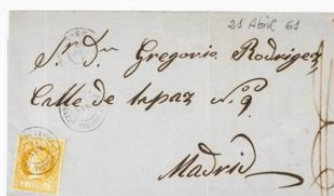 21 Abril 61
Sr. Dn Gregorio Rodriguez
Calle de la paz N.º 9.
Madrid